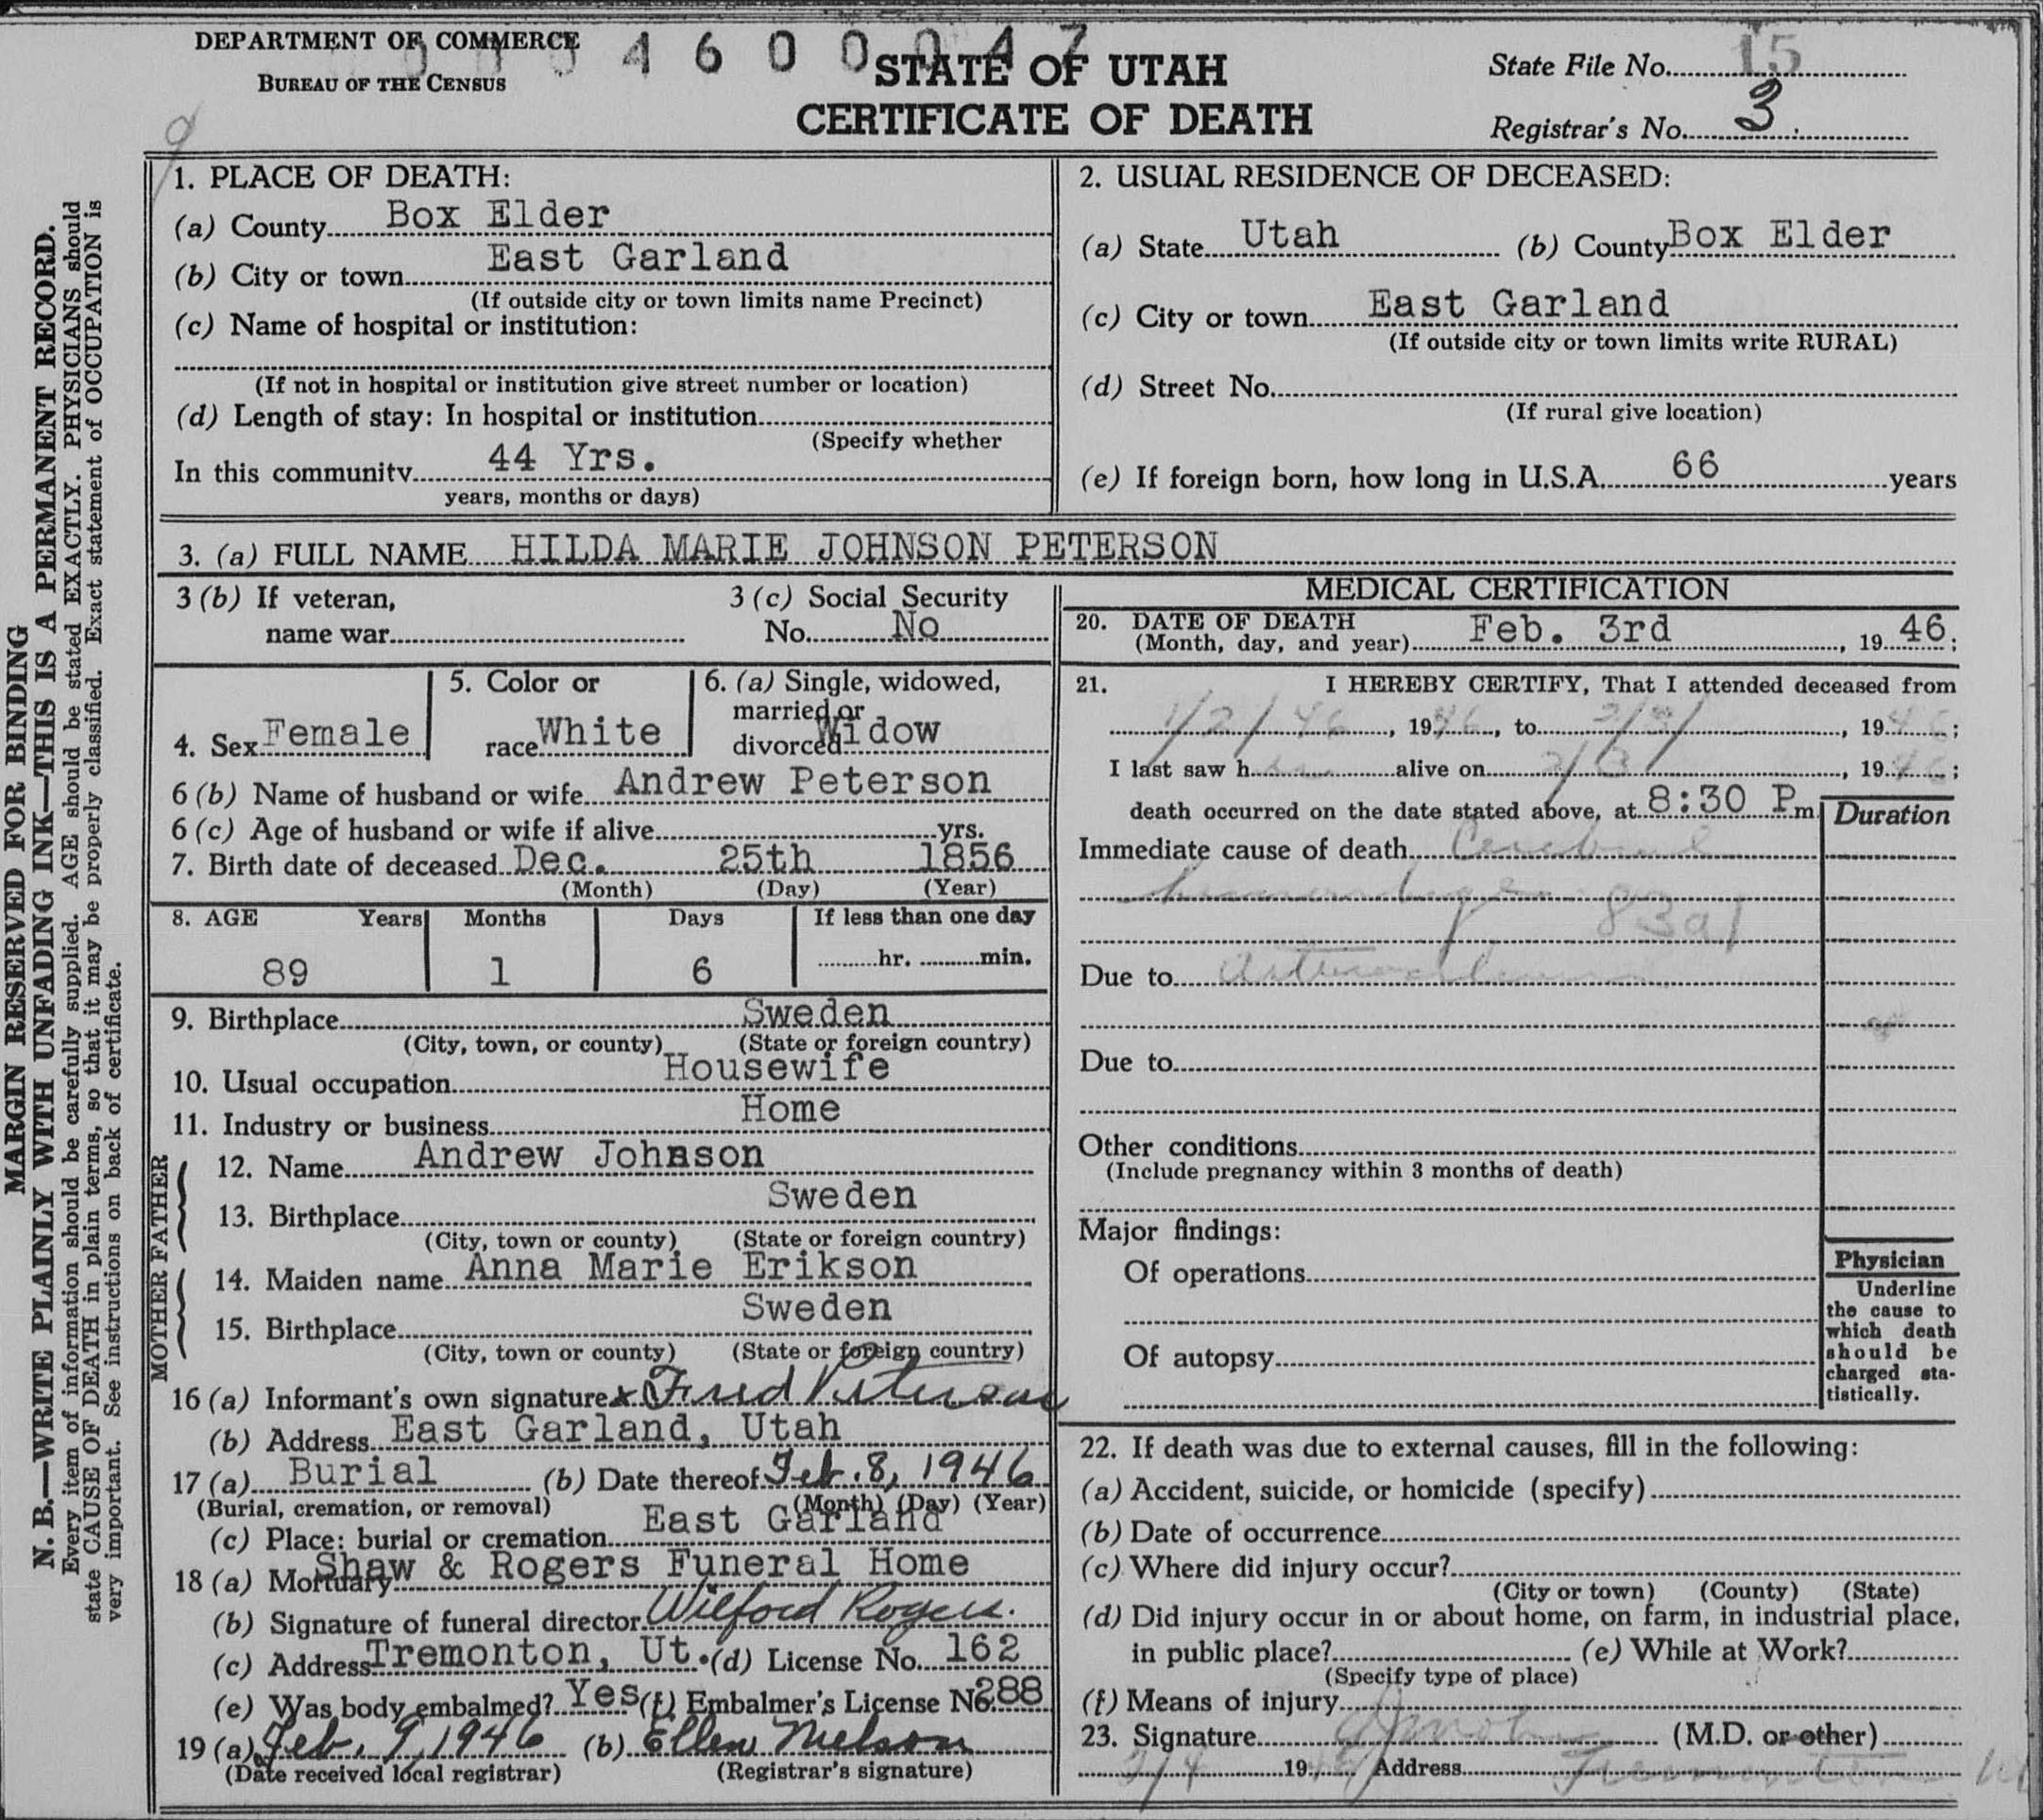 DEPARTMENT OF COMMERCE
BUREAU OF THE CENSUS
4 6 0 0 0 4 7
STATE OF UTAH
CERTIFICATE OF DEATH
State File No. 15
Registrar's No. 3
9
MARGIN RESERVED FOR BINDING
N. B.—WRITE PLAINLY WITH UNFADING INK—THIS IS A PERMANENT RECORD.
Every item of information should be carefully supplied. AGE should be stated EXACTLY. PHYSICIANS should
state CAUSE OF DEATH in plain terms, so that it may be properly classified. Exact statement of OCCUPATION is
very important. See instructions on back of certificate.
1. PLACE OF DEATH:
(a) County Box Elder
(b) City or town East Garland
(If outside city or town limits name Precinct)
(c) Name of hospital or institution:
(If not in hospital or institution give street number or location)
(d) Length of stay: In hospital or institution
(Specify whether
In this community 44 Yrs.
years, months or days)
2. USUAL RESIDENCE OF DECEASED:
(a) State Utah (b) County Box Elder
(c) City or town East Garland
(If outside city or town limits write RURAL)
(d) Street No.
(If rural give location)
(e) If foreign born, how long in U.S.A. 66 years
3. (a) FULL NAME HILDA MARIE JOHNSON PETERSON
3 (b) If veteran,
name war
3 (c) Social Security
No. No
4. Sex Female
5. Color or
race White
6. (a) Single, widowed,
married or
divorced Widow
6 (b) Name of husband or wife Andrew Peterson
6 (c) Age of husband or wife if alive yrs.
7. Birth date of deceased Dec. 25th 1856
(Month) (Day) (Year)
8. AGE Years Months Days If less than one day
89 1 6 hr. min.
9. Birthplace Sweden
(City, town, or county) (State or foreign country)
10. Usual occupation Housewife
11. Industry or business Home
MOTHER FATHER
12. Name Andrew Johnson
13. Birthplace Sweden
(City, town or county) (State or foreign country)
14. Maiden name Anna Marie Erikson
15. Birthplace Sweden
(City, town or county) (State or foreign country)
16 (a) Informant's own signature x Fred Peterson
(b) Address East Garland, Utah
17 (a) Burial (b) Date thereof Feb. 8, 1946
(Burial, cremation, or removal) (Month) (Day) (Year)
(c) Place: burial or cremation East Garland
18 (a) Mortuary Shaw & Rogers Funeral Home
(b) Signature of funeral director Wilford Rogers.
(c) Address Tremonton, Ut. (d) License No. 162
(e) Was body embalmed? Yes (f) Embalmer's License No. 288
19 (a) Feb. 9, 1946 (b) Ellen Nielson
(Date received local registrar) (Registrar's signature)
MEDICAL CERTIFICATION
20. DATE OF DEATH
(Month, day, and year) Feb. 3rd, 19 46;
21. I HEREBY CERTIFY, That I attended deceased from
1/2/46, 19 46, to 2/3/, 19 46;
I last saw her alive on 2/3/, 19 46;
death occurred on the date stated above, at 8:30 P m.
Duration
Immediate cause of death Cerebral
hemorrhage
83a1
Due to
Due to
Other conditions
(Include pregnancy within 3 months of death)
Major findings:
Of operations
Of autopsy
Physician
Underline
the cause to
which death
should be
charged sta-
tistically.
22. If death was due to external causes, fill in the following:
(a) Accident, suicide, or homicide (specify)
(b) Date of occurrence
(c) Where did injury occur?
(City or town) (County) (State)
(d) Did injury occur in or about home, on farm, in industrial place,
in public place? (e) While at Work?
(Specify type of place)
(f) Means of injury
23. Signature (M.D. or other)
2/4 19 Address Tremonton